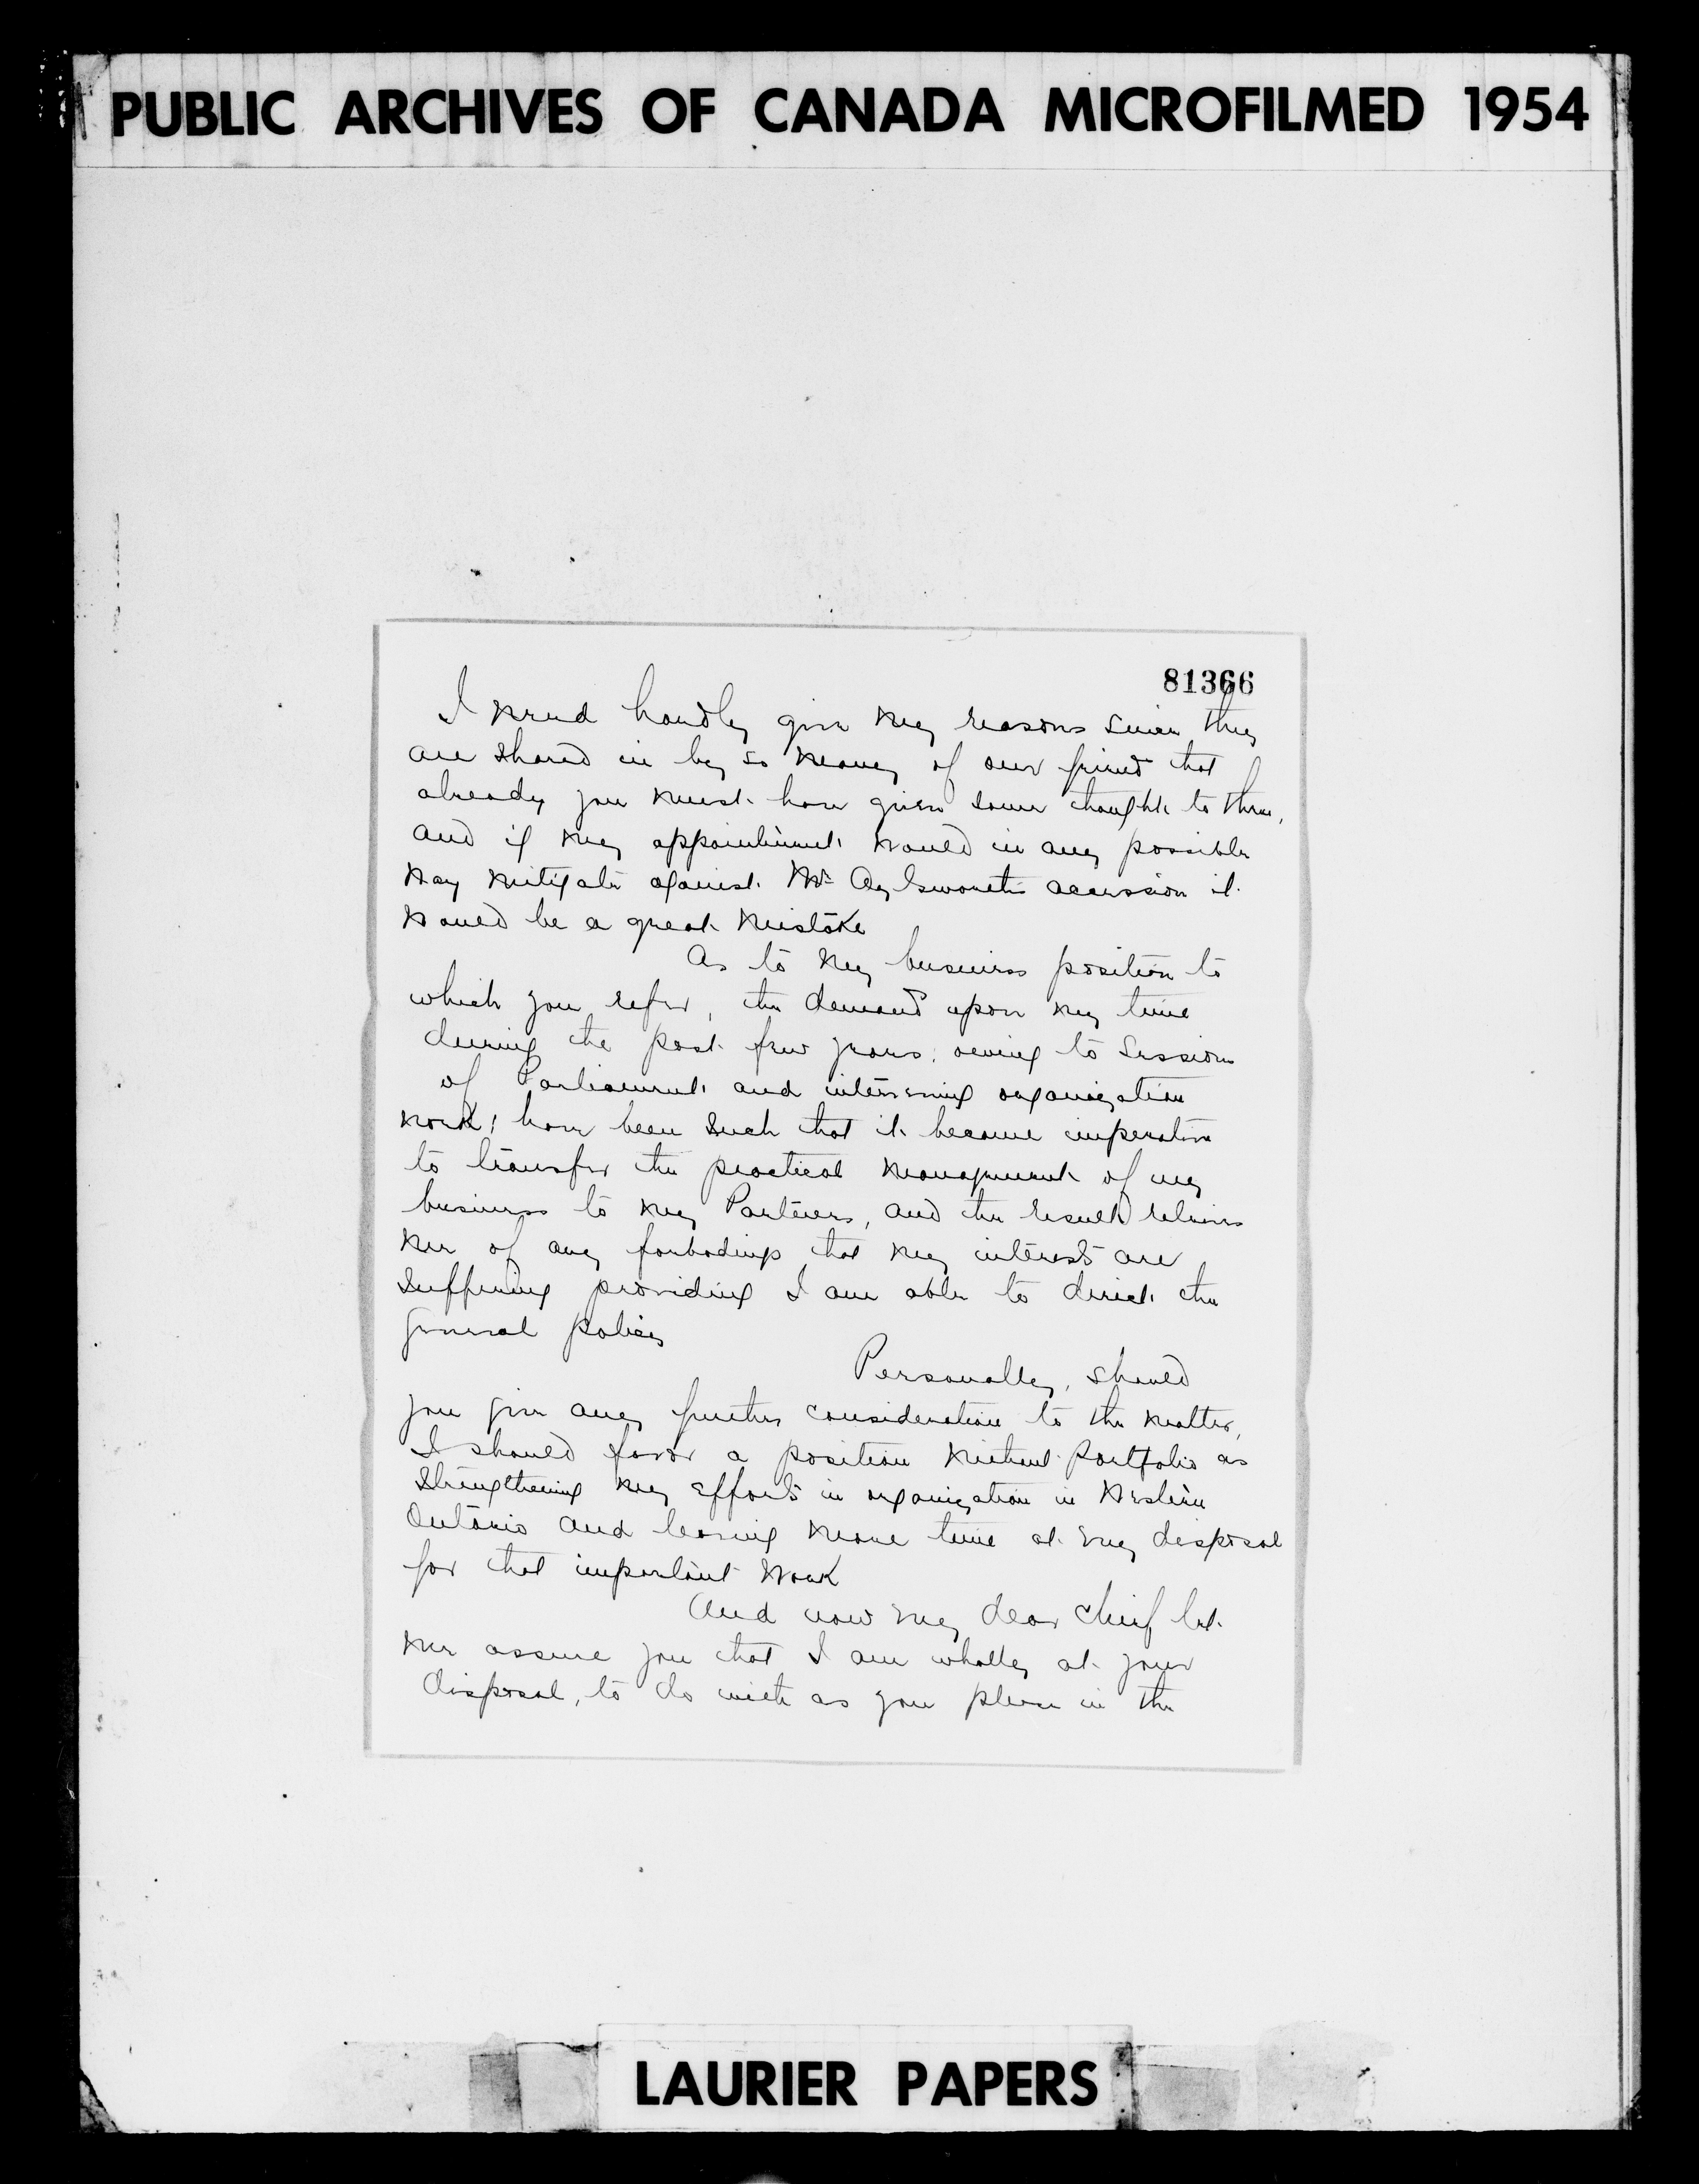 PUBLIC ARCHIVES OF CANADA MICROFILMED 1954
81366
I need hardly give my reasons since they
are shared in by so many of our friends that
already you must have given some thought to them,
and if my appointment would in any possible
way mitigate against Mr Aylesworth's accession it
would be a great mistake
As to my business position to
which you refer, the demand upon my time
during the past few years, owing to Sessions
of Parliament and intervening organization
work, have been such that it became imperative
to transfer the practical management of my
business to my Partners, and the result relieves
me of any forbodings that my interests are
suffering providing I am able to direct the
general policy
Personally, should
you give any further consideration to the matter,
I should favor a position without Portfolio as
strengthening my efforts in organization in Western
Ontario and leaving more time at my disposal
for that important work
And now my dear Chief let
me assure you that I am wholly at your
disposal, to do with as you please in the
LAURIER PAPERS